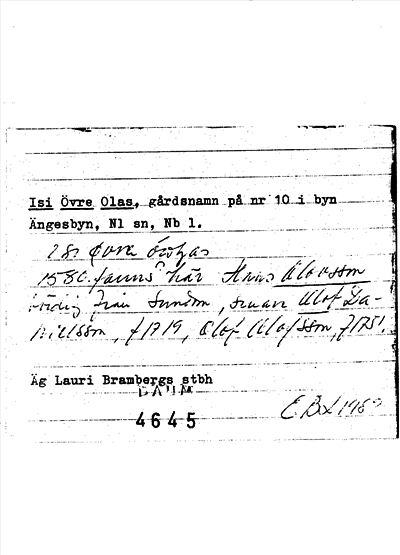 Isi Övre Olas, gårdsnamn på nr 10 i byn
Ängesbyn, Nl sn, Nb l.
övre
1580. fanns här Hans Olovsson
bördig från Sundom, svären Olof Da-
nielsson, f 1719, Olof Olofsson, f 1751.
Äg Lauri Brambergs stbh
DAUM
4645
E.Bd 1969